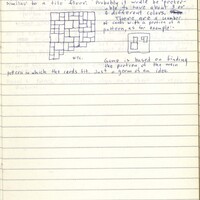 similar to a tile floor. Probably it would be prefer-
able to have about 3 or
4 different colors.
There are a number
of cards with a portion of a
pattern, as for example:
etc.
Game is based on finding
the portion of the main
pattern in which the cards fit. Just a germ of an idea.